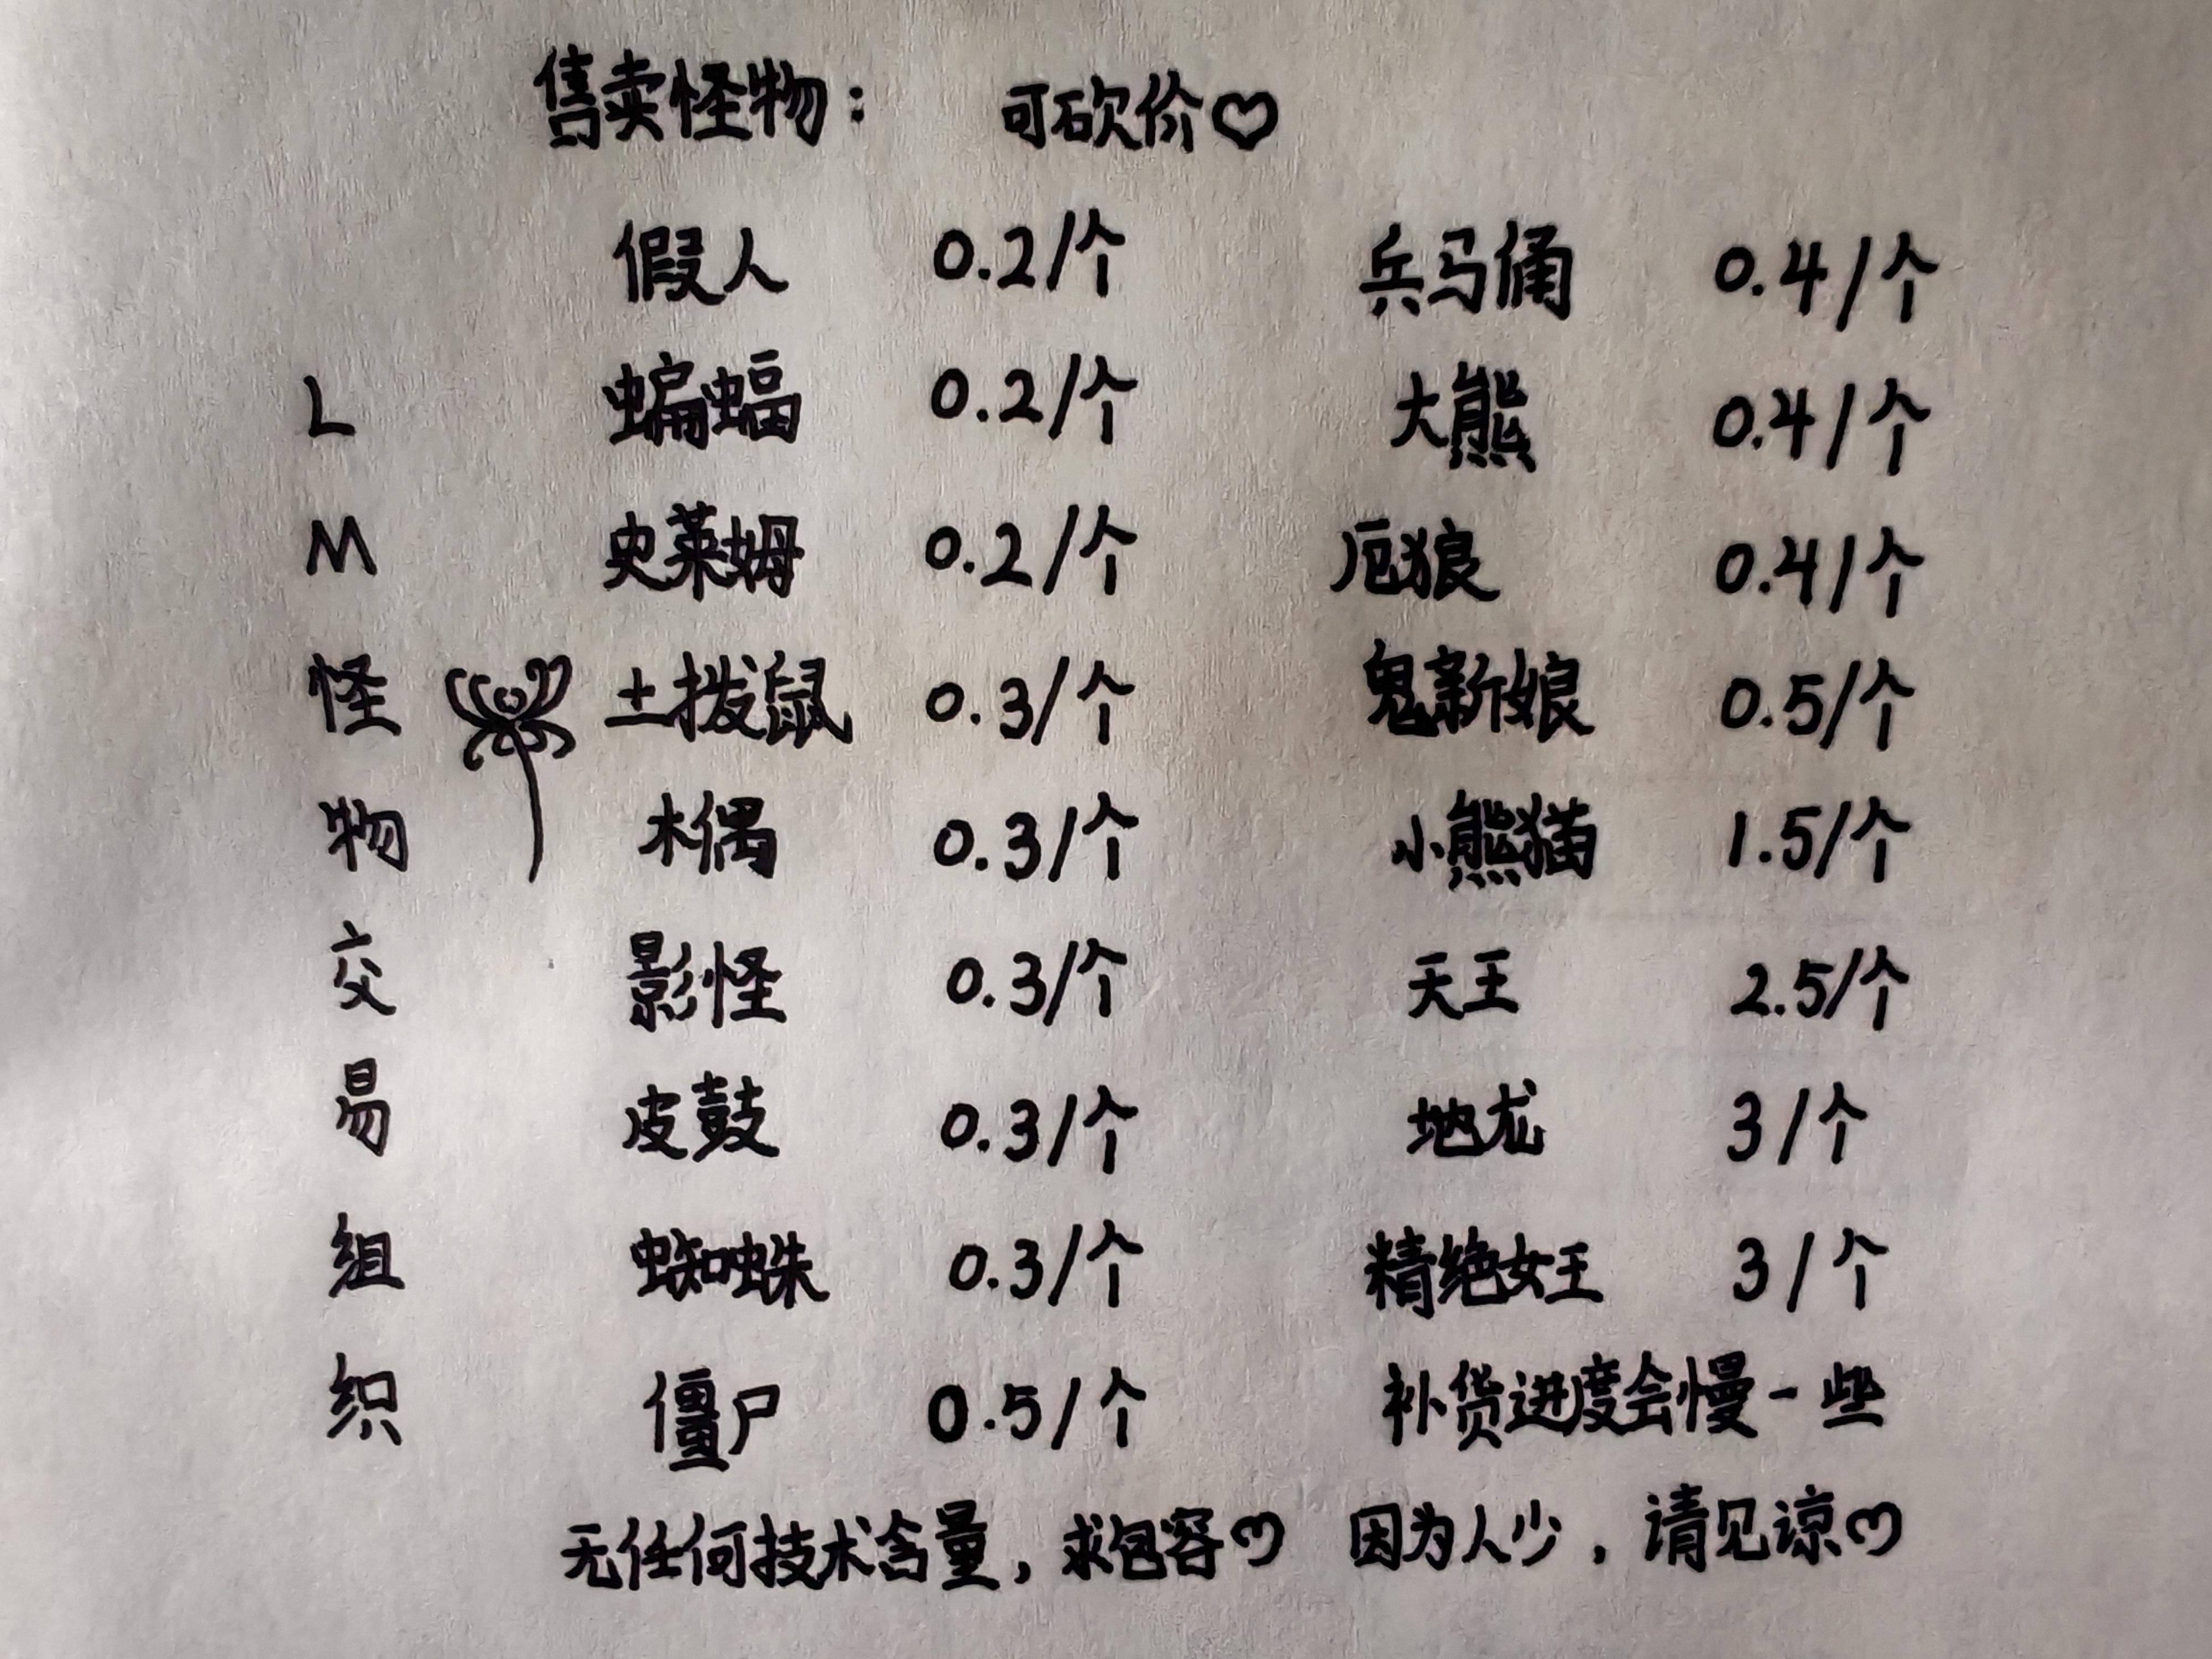 售卖怪物： 可砍价♡
LM怪物交易组织
假人 0.2/个
蝙蝠 0.2/个
史莱姆 0.2/个
土拨鼠 0.3/个
木偶 0.3/个
影怪 0.3/个
皮鼓 0.3/个
蜘蛛 0.3/个
僵尸 0.5/个
兵马俑 0.4/个
大熊 0.4/个
厄狼 0.4/个
鬼新娘 0.5/个
小熊猫 1.5/个
天王 2.5/个
地龙 3/个
精绝女王 3/个
补货进度会慢一些
无任何技术含量，求包容♡ 因为人少，请见谅♡